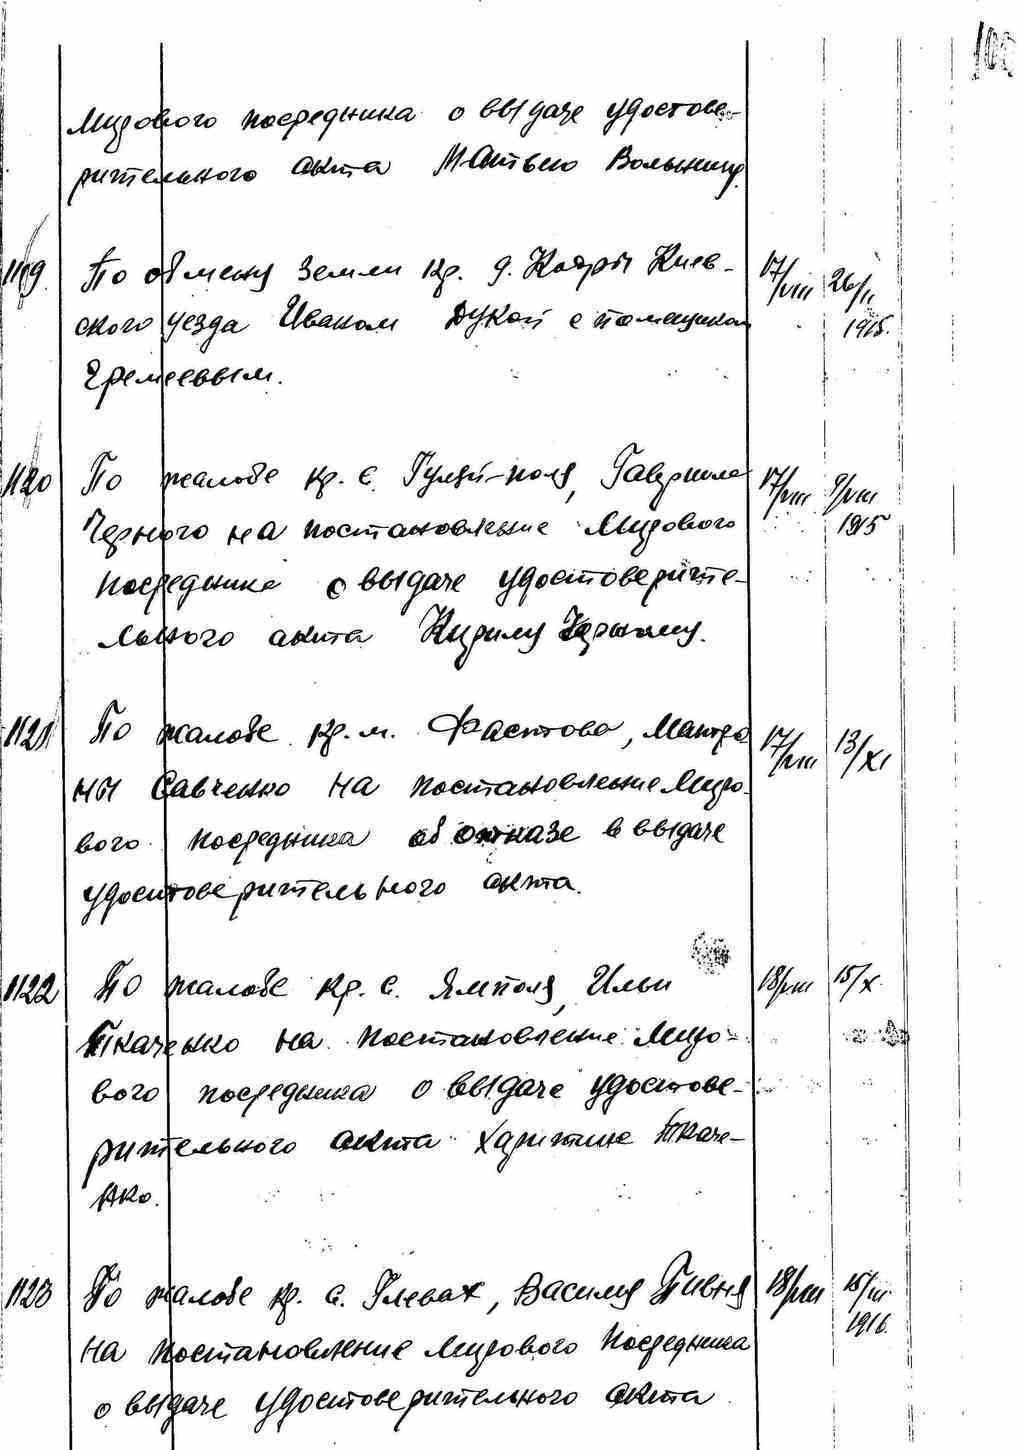 Мирового посредника о выдаче удостове-
рительного акта Матвею Волынцу.
1119. По обмену земли кр. д. Кодры Киев- 17/VIII 26/II
ского уезда Иваном Дукой с помещиком 1915.
Еремеевым.
1120 По жалобе кр. с. Гуляй-поля, Гавриила 17/VIII 9/VIII
Черного на постановление Мирового 1915
Посредника о выдаче удостоверите-
льного акта Кирилу Черному.
1121 По жалобе кр. м. Фастова, Матро 17/VIII 13/XI
ны Савченко на постановление Миро-
вого посредника об отказе в выдаче
удостоверительного акта.
1122 По жалобе кр. с. Ямполя, Ильи 18/VIII 15/X.
Ткаченко на постановление Миро-
вого посредника о выдаче удостове-
рительного акта Харитине Ткаче-
нко.
1123 По жалобе кр. с. Глевах, Василия Пивня 18/VIII 15/III.
на постановление Мирового Посредника 1916.
о выдаче удостоверительного акта